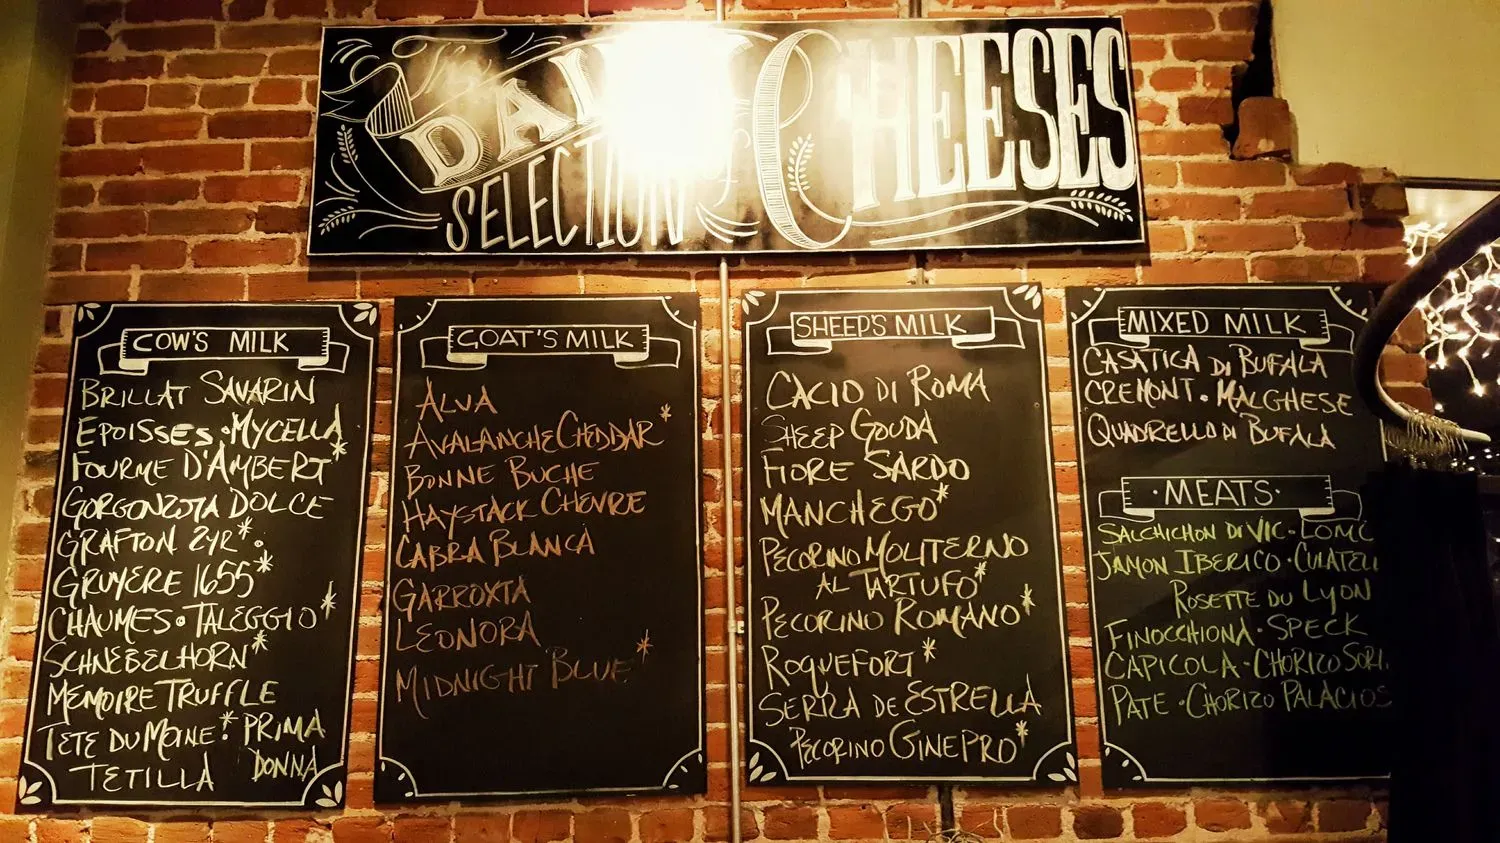 The
SELECTION OF CHEESES
COW'S MILK
BRILLAT SAVARIN
EPOISSES · MYCELLA
FOURME D'AMBERT*
GORGONZOLA DOLCE
GRAFTON 2YR* ·
GRUYERE 1655*
CHAUMES · TALEGGIO*
SCHNEBELHORN*
MEMOIRE TRUFFLE
TETE DU MOINE* · PRIMA
TETILLA DONNA
GOAT'S MILK
ALVA
AVALANCHE CHEDDAR*
BONNE BUCHE
HAYSTACK CHEVRE
CABRA BLANCA
GARROXTA
LEONORA
MIDNIGHT BLUE*
SHEEP'S MILK
CACIO DI ROMA
SHEEP GOUDA
FIORE SARDO
MANCHEGO*
PECORINO MOLITERNO
AL TARTUFO*
PECORINO ROMANO*
ROQUEFORT*
SERRA DE ESTRELLA
PECORINO GINEPRO*
MIXED MILK
CASATICA DI BUFALA
CREMONT · MALGHESE
QUADRELLO DI BUFALA
· MEATS ·
SALCHICHON DI VIC · LOMO
JAMON IBERICO ·
ROSETTE DU LYON
FINOCCHIONA · SPECK
CAPICOLA · CHORIZO
PATE · CHORIZO PALACIOS